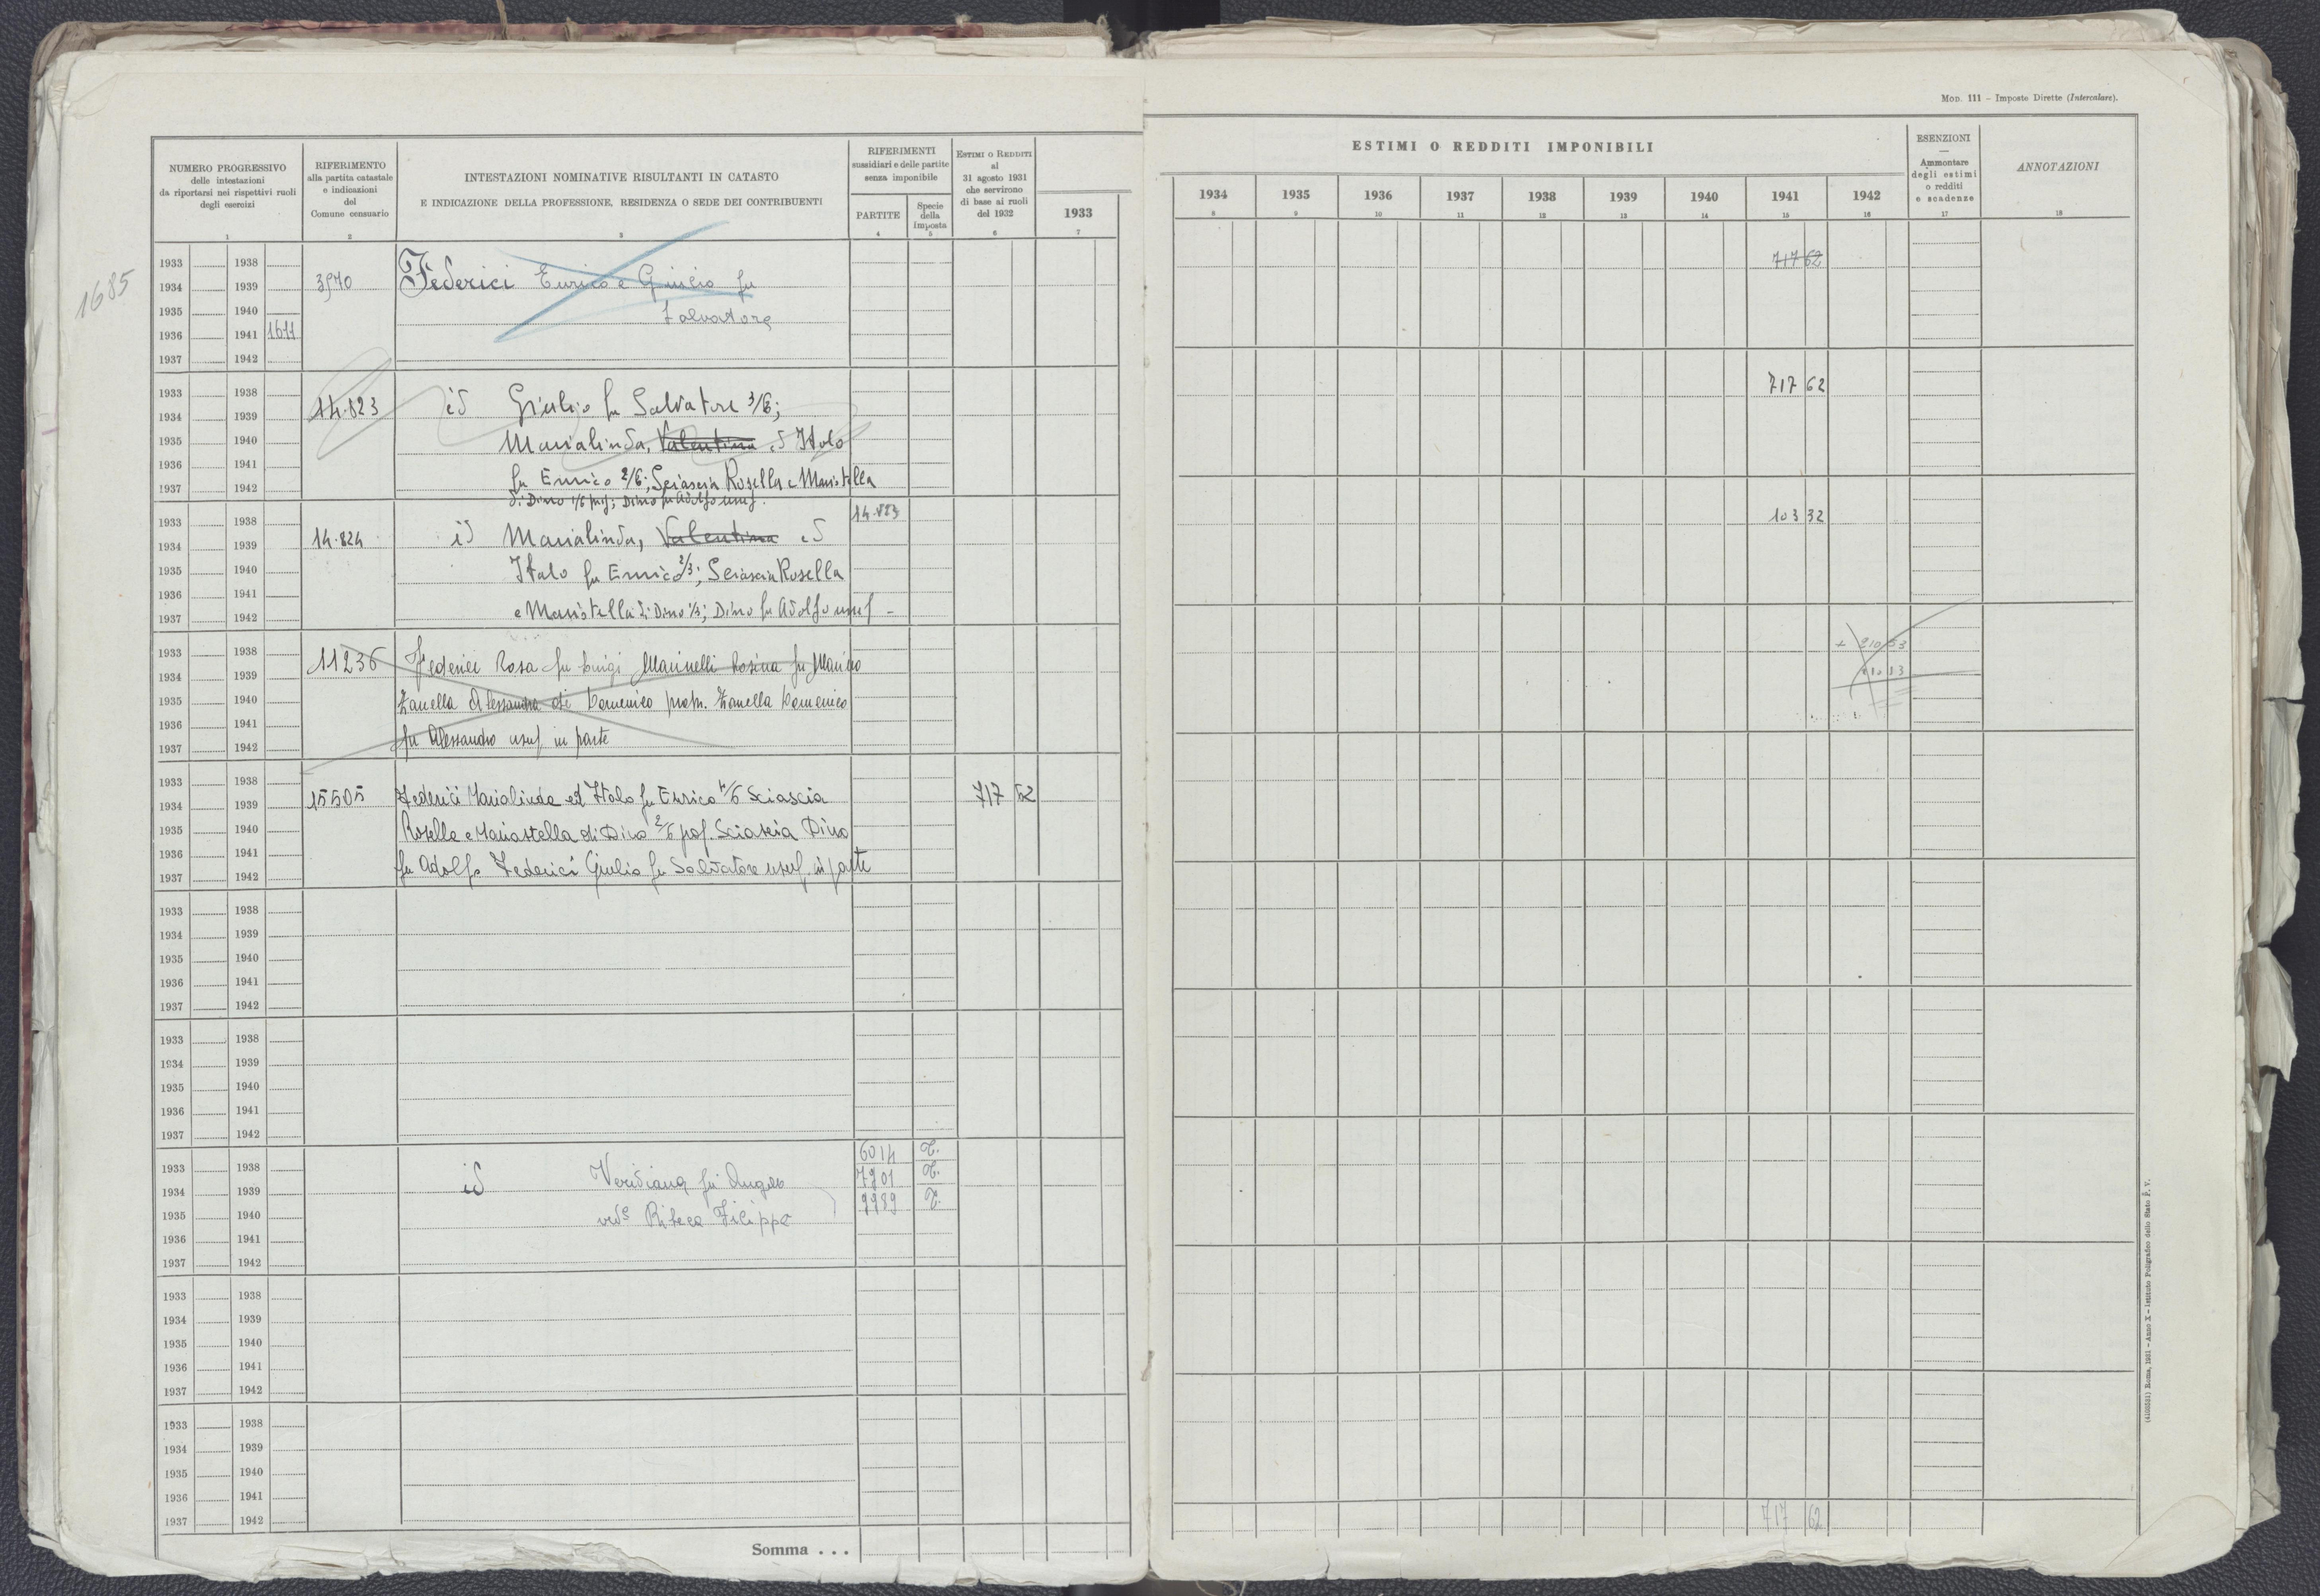 MOD. 111 – Imposte Dirette (Intercalare).
NUMERO PROGRESSIVO
delle intestazioni
da riportarsi nei rispettivi ruoli
degli esercizi
1
RIFERIMENTO
alla partita catastale
e indicazioni
del
Comune censuario
2
INTESTAZIONI NOMINATIVE RISULTANTI IN CATASTO
E INDICAZIONE DELLA PROFESSIONE, RESIDENZA O SEDE DEI CONTRIBUENTI
3
RIFERIMENTI
sussidiari e delle partite
senza imponibile
PARTITE
4
Specie
della
imposta
5
ESTIMI O REDDITI
al
31 agosto 1931
che servirono
di base ai ruoli
del 1932
6
1933
7
ESTIMI O REDDITI IMPONIBILI
1934 1935 1936 1937 1938 1939 1940 1941 1942
8 9 10 11 12 13 14 15 16
ESENZIONI
—
Ammontare
degli estimi
o redditi
e scadenze
17
ANNOTAZIONI
18
1685
1933 1938
1934 1939 3970 Federici Enrico e Giulio fu 717 62
1935 1940 Salvatore
1936 1941 1611
1937 1942
1933 1938 717 62
1934 1939 14.823 id Giulio fu Salvatore 3/6;
1935 1940 Marialinda, Valentina ed Italo
1936 1941
1937 1942 fu Enrico 2/6; Sciascia Rosella e Maristella
di Dino 1/6 prop; Dino fu Adolfo usuf.
1933 1938 14.823 103 32
1934 1939 14.824 id Marialinda, Valentina ed
1935 1940 Italo fu Enrico 2/3; Sciascia Rosella
1936 1941
1937 1942 e Maristella di Dino 1/3; Dino fu Adolfo usuf -
1933 1938
1934 1939 11236 Federici Rosa fu Luigi Marinelli Rosina fu Marino
1935 1940 Zanella Alessandro di Domenico propr. Zanella Domenico
1936 1941
1937 1942 fu Alessandro usuf. in parte
1933 1938
1934 1939 15505 Federici Marialinda ed Italo fu Enrico 4/6 Sciascia 717 62
1935 1940 Rosella e Mariastella di Dino 2/6 prop. Sciascia Dino
1936 1941
1937 1942 fu Adolfo Federici Giulio fu Salvatore usuf. in parte
1933 1938
1934 1939
1935 1940
1936 1941
1937 1942
1933 1938
1934 1939
1935 1940
1936 1941
1937 1942
6014
1933 1938 7901
1934 1939 id Veridiana fu Angelo 9989
1935 1940 Filippo
1936 1941
1937 1942
1933 1938
1934 1939
1935 1940
1936 1941
1937 1942
1933 1938
1934 1939
1935 1940
1936 1941
1937 1942 717 62
Somma . . .
(4109381) Roma, 1931 – Anno X – Istituto Poligrafico dello Stato P. V.